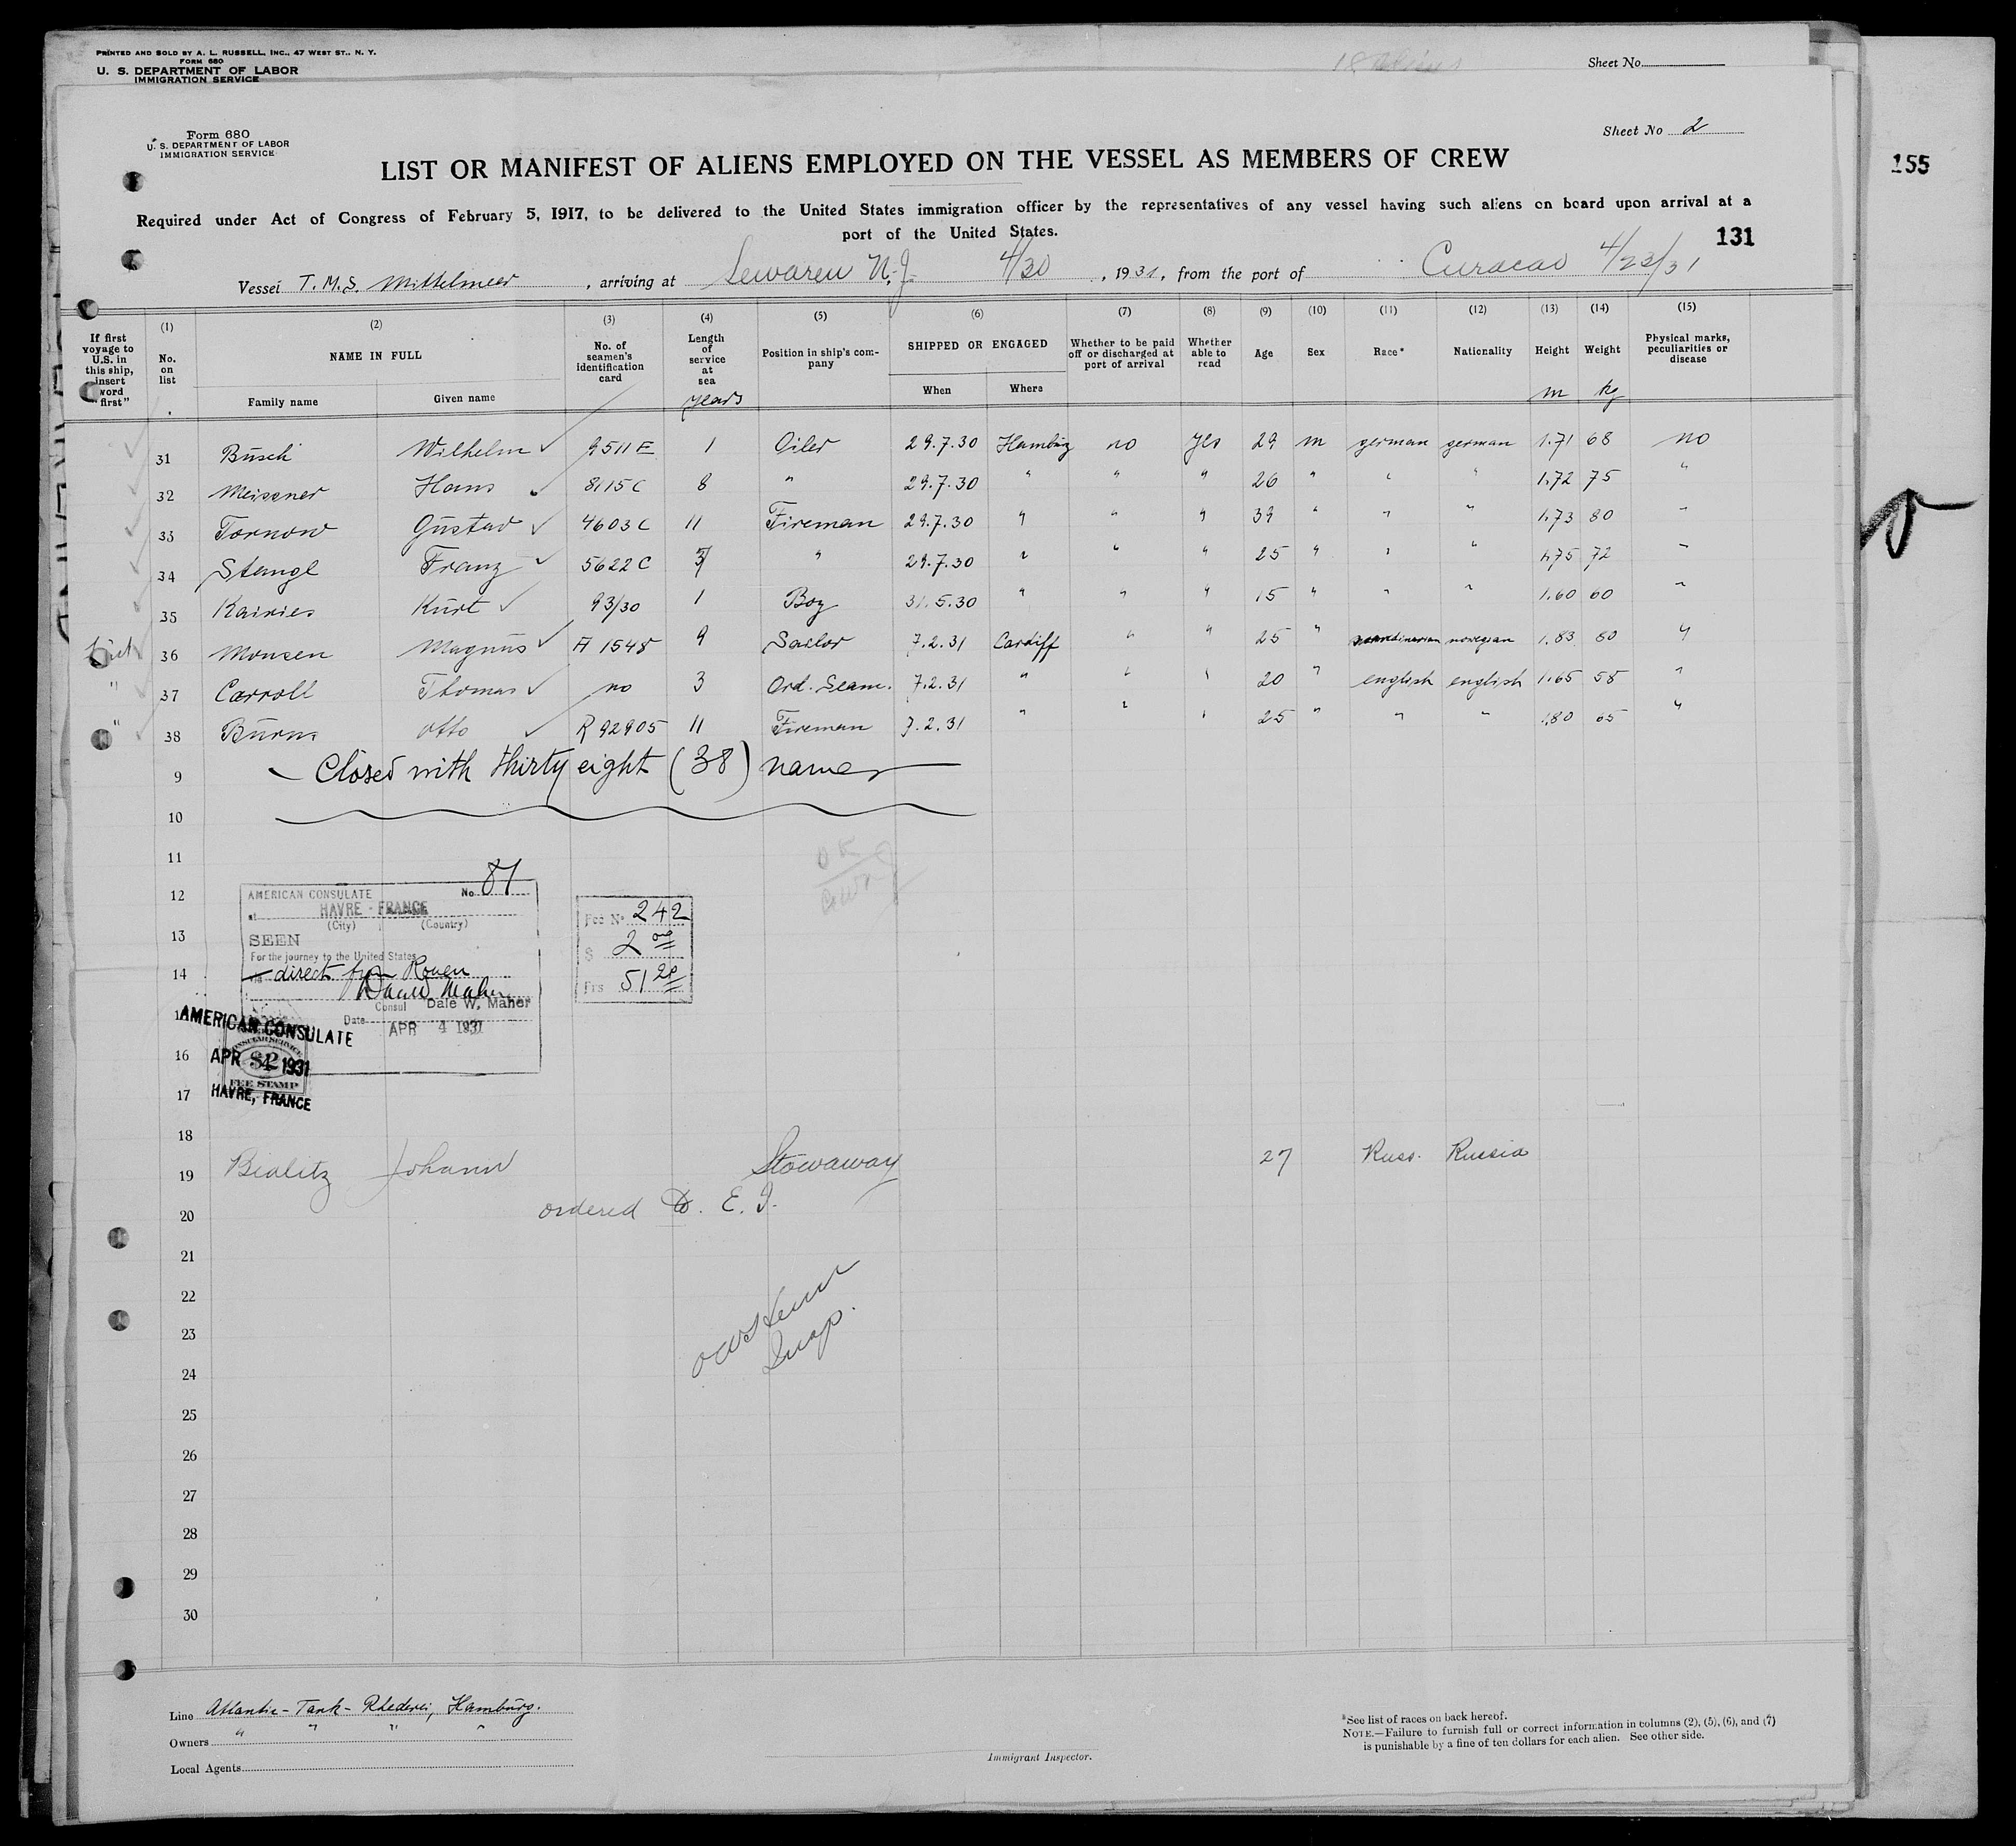 PRINTED AND SOLD BY A. L. RUSSELL, INC., 47 WEST ST., N. Y.
FORM 680
U. S. DEPARTMENT OF LABOR
IMMIGRATION SERVICE
Sheet No.
Form 680
U. S. DEPARTMENT OF LABOR
IMMIGRATION SERVICE
Sheet No 2
155
LIST OR MANIFEST OF ALIENS EMPLOYED ON THE VESSEL AS MEMBERS OF CREW
Required under Act of Congress of February 5, 1917, to be delivered to the United States immigration officer by the representatives of any vessel having such aliens on board upon arrival at a
port of the United States.
131
Vessel T. M. S. Mittelmeer, arriving at Sewaren N.J. 4/30, 1931, from the port of Curacao 4/23/31
If first voyage to U.S. in this ship, insert word "first"
(1) No. on list
(2) NAME IN FULL
Family name Given name
(3) No. of seamen's identification card
(4) Length of service at sea years
(5) Position in ship's company
(6) SHIPPED OR ENGAGED
When Where
(7) Whether to be paid off or discharged at port of arrival
(8) Whether able to read
(9) Age
(10) Sex
(11) Race*
(12) Nationality
(13) Height m
(14) Weight kg
(15) Physical marks, peculiarities or disease
31 Büsch Wilhelm 9511 E 1 Oiler 29.7.30 Hamburg no yes 29 m german german 1.71 68 no
32 Meissner Hans 8115 C 8 " 29.7.30 " " " 26 " " " 1.72 75 "
33 Tornow Güstav 4603 C 11 Fireman 29.7.30 " " " 39 " " " 1.73 80 "
34 Stangl Franz 5622 C " 29.7.30 " " " 25 " " " 1.75 72 "
35 Kairies Kürt 93/30 1 Boy 31.5.30 " " " 15 " " " 1.60 60 "
first 36 Monsen Magnüs A 1548 9 Sailor 7.2.31 Cardiff " " 25 " scandinavian norwegian 1.83 80 "
" 37 Carroll Thomas no 3 Ord. Seam. 7.2.31 " " " 20 " english english 1.65 58 "
" 38 Bürns otto R 92905 11 Fireman 7.2.31 " " " 25 " " " 1.80 65 "
9 Closed with thirty eight (38) names
10
11
12
13
14
16
17
AMERICAN CONSULATE No. 87
at HAVRE - FRANCE
(City) (Country)
SEEN
For the journey to the United States
direct from Rouen
Consul Dale W. Maher
Date APR 4 1931
Fee No 242
$ 2 00
Frs 51 20
AMERICAN CONSULATE
APR 4 1931
HAVRE, FRANCE
CONSULAR SERVICE
$2
FEE STAMP
18
19 Bialitz Johann Stowaway 27 Russ. Russia
20 ordered to E. I.
21
22
23
Insp.
24
25
26
27
28
29
30
Line Atlantic-Tank-Rhederei, Hamburg.
Owners " " " "
Local Agents
Immigrant Inspector.
*See list of races on back hereof.
NOTE.—Failure to furnish full or correct information in columns (2), (5), (6), and (7)
is punishable by a fine of ten dollars for each alien. See other side.